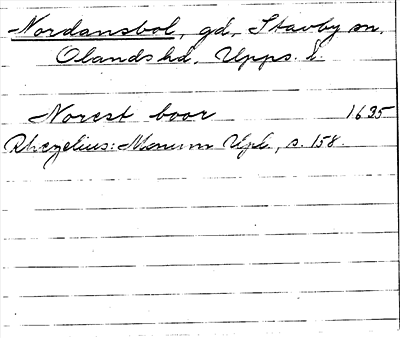 Nordansbol, gd, Stavby sn,
Olands hd, Upps. l.
Norest boor 1635
Rhezelius: Monum Upl., s. 158.